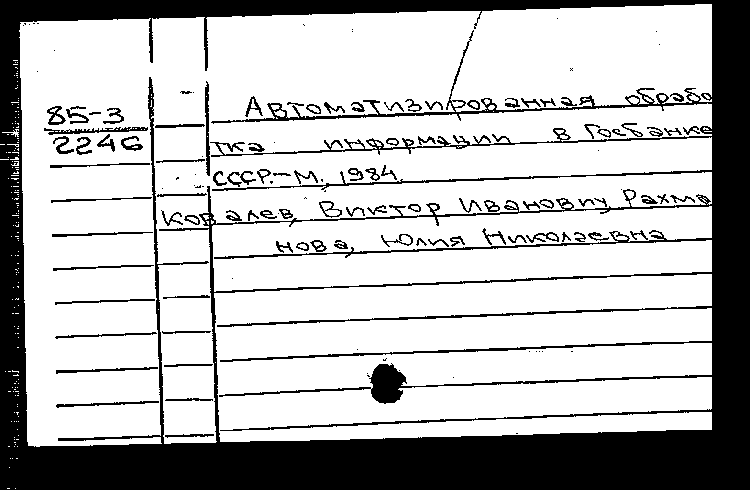 85-3
2246
Автоматизированная обрабо
тка информации в Госбанке
СССР.-М, 1984
Ковалев, Виктор Иванович, Рахма
нова, Юлия Николаевна